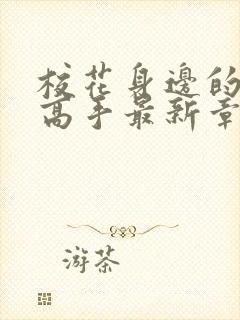 校花身边的
高手最新章
游茶